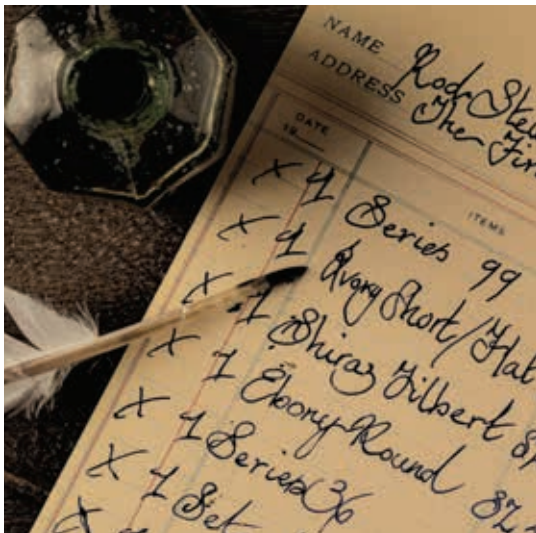 NAME Rod Ste
ADDRESS The Fir
DATE
19
ITEMS
x 1 Series 99
x 1 Ivory Short/Flat
x 1 Shiraz Filbert
x 1 Ebony Round
x 1 Series 36
x 1 Set